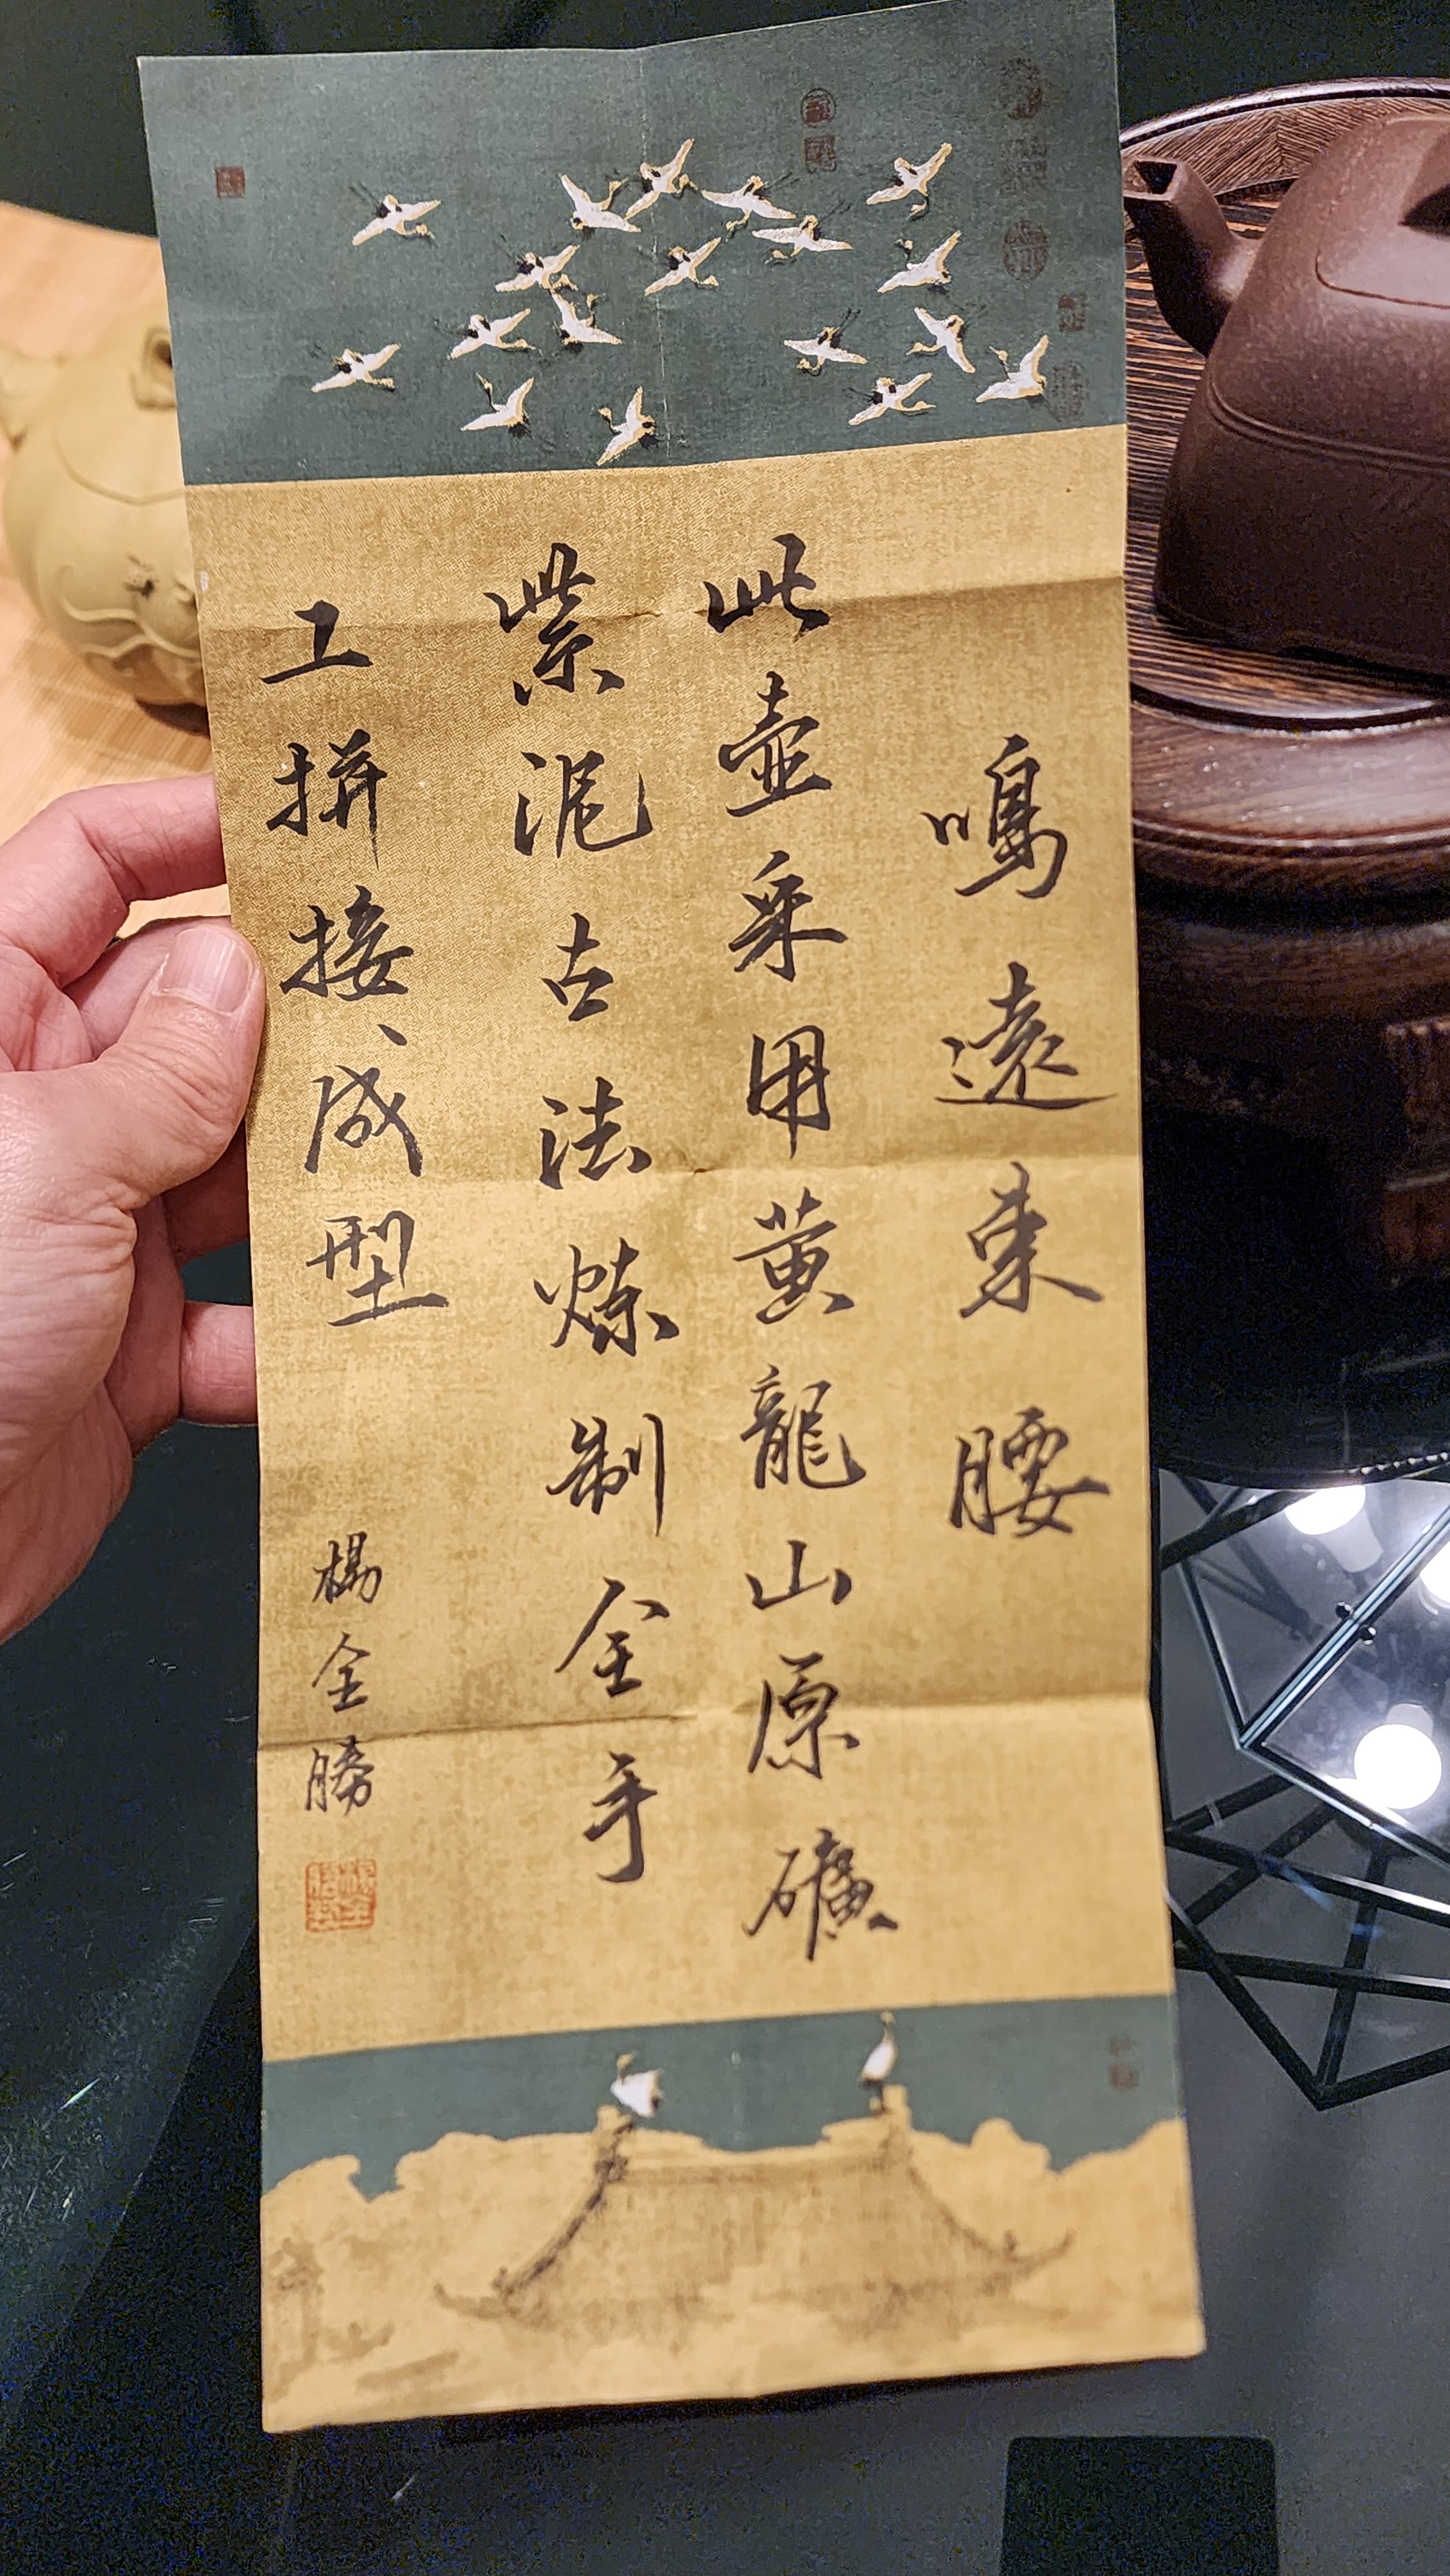 鳴遠束腰
此壺采用黄龍山原礦
紫泥古法炼制全手
工拼接、成型
楊全勝